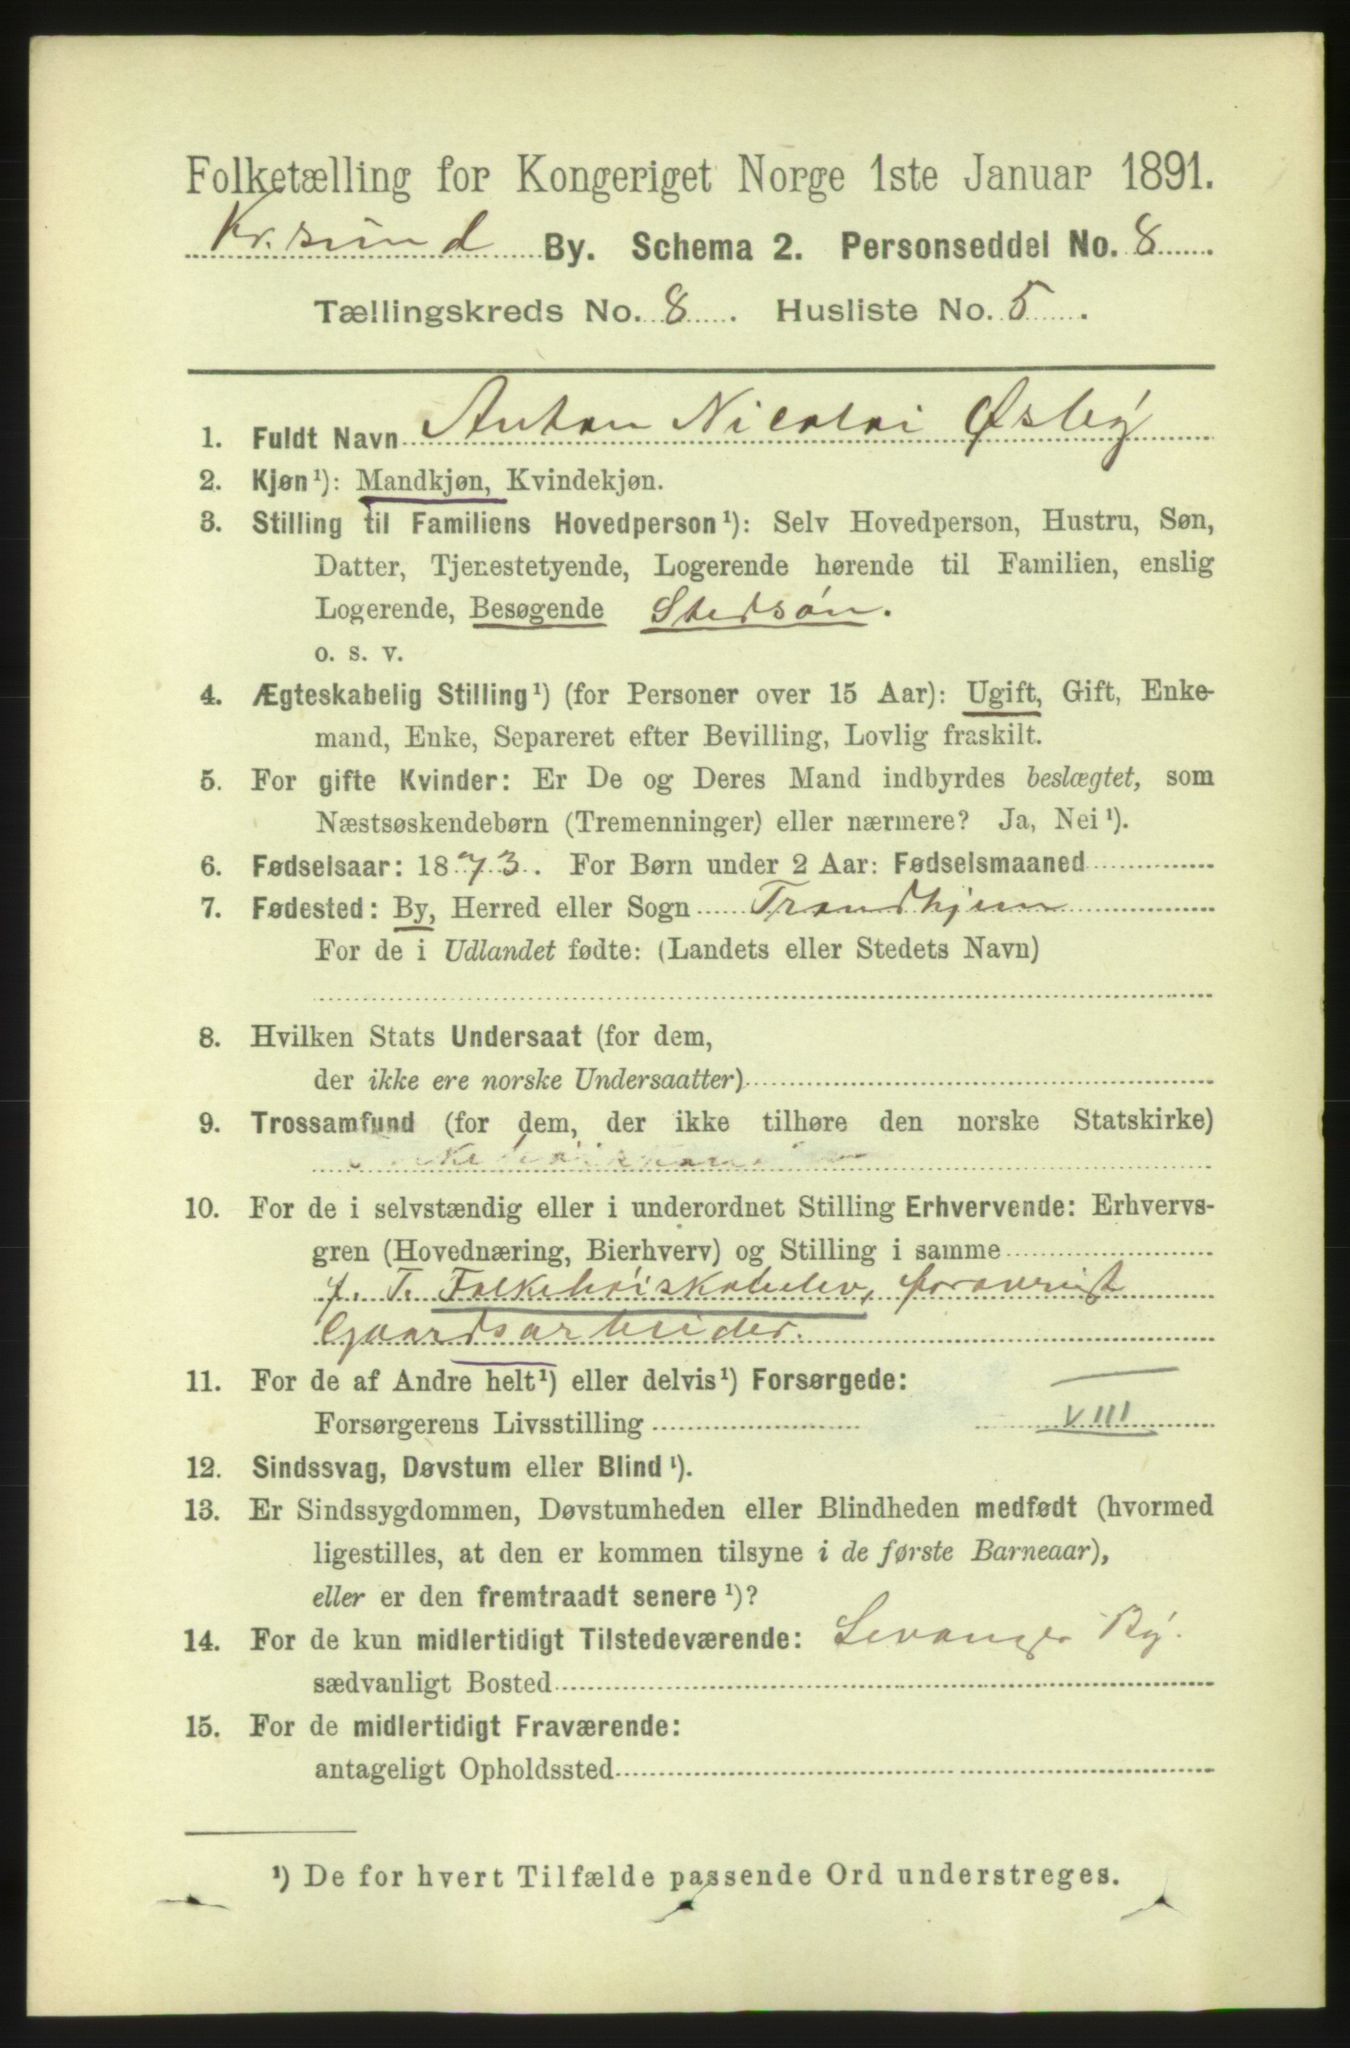 Folketælling for Kongeriget Norge 1ste Januar 1891.
Kr.sund By. Schema 2. Personseddel No. 8.
Tællingskreds No. 8. Husliste No. 5.
1. Fuldt Navn Anton Nicolai Øsby
2. Kjøn¹): Mandkjøn, Kvindekjøn.
3. Stilling til Familiens Hovedperson¹): Selv Hovedperson, Hustru, Søn,
Datter, Tjenestetyende, Logerende hørende til Familien, enslig
Logerende, Besøgende Stedsøn.
o. s. v.
4. Ægteskabelig Stilling¹) (for Personer over 15 Aar): Ugift, Gift, Enke-
mand, Enke, Separeret efter Bevilling, Lovlig fraskilt.
5. For gifte Kvinder: Er De og Deres Mand indbyrdes beslægtet, som
Næstsøskendebørn (Tremenninger) eller nærmere? Ja, Nei¹).
6. Fødselsaar: 1873. For Børn under 2 Aar: Fødselsmaaned
7. Fødested: By, Herred eller Sogn Trondhjem
For de i Udlandet fødte: (Landets eller Stedets Navn)
8. Hvilken Stats Undersaat (for dem,
der ikke ere norske Undersaatter)
9. Trossamfund (for dem, der ikke tilhøre den norske Statskirke)
10. For de i selvstændig eller i underordnet Stilling Erhvervende: Erhvervs-
gren (Hovednæring, Bierhverv) og Stilling i samme
f. T. Folkehøiskoleelev, forøvrigt
Gaardsarbeider.
11. For de af Andre helt¹) eller delvis¹) Forsørgede:
Forsørgerens Livsstilling VIII
12. Sindssvag, Døvstum eller Blind¹).
13. Er Sindssygdommen, Døvstumheden eller Blindheden medfødt (hvormed
ligestilles, at den er kommen tilsyne i de første Barneaar),
eller er den fremtraadt senere¹)?
14. For de kun midlertidigt Tilstedeværende: Levanger By.
sædvanligt Bosted
15. For de midlertidigt Fraværende:
antageligt Opholdssted
¹) De for hvert Tilfælde passende Ord understreges.